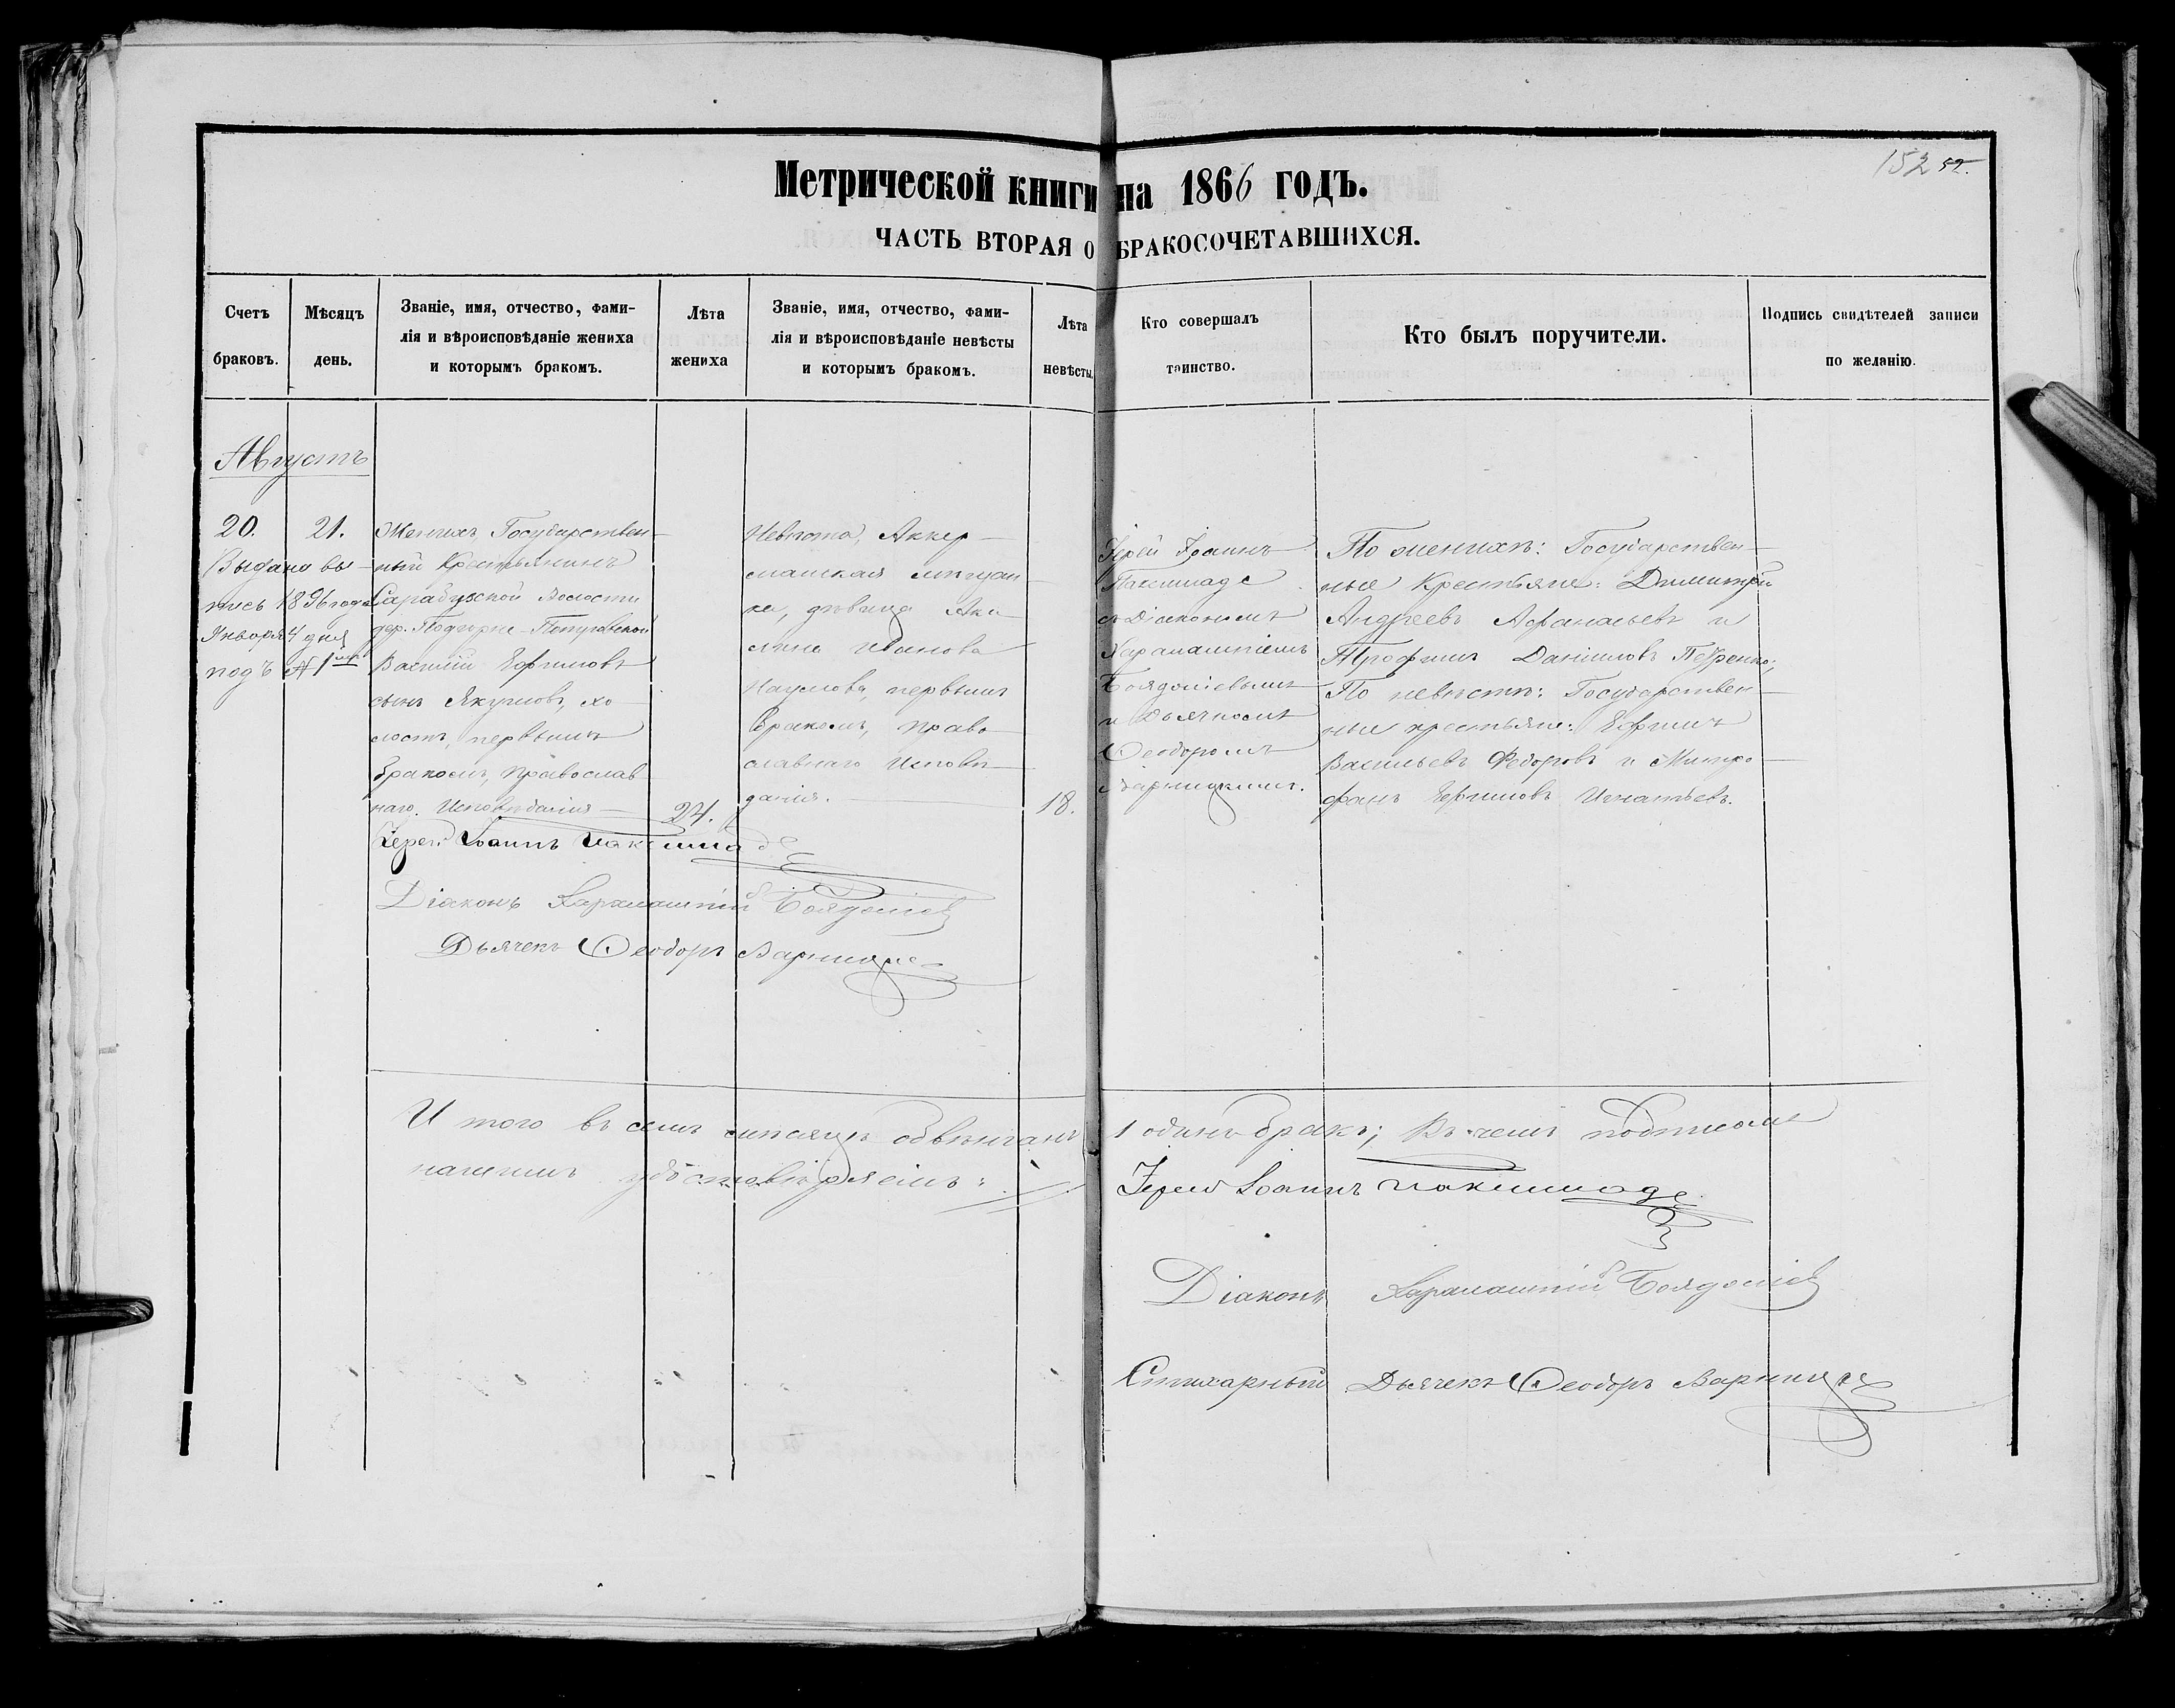 152 52.
Метрической книги на 1866 годъ.
ЧАСТЬ ВТОРАЯ О БРАКОСОЧЕТАВШИХСЯ.
Счетъ браковъ.
Мѣсяцъ день.
Званіе, имя, отчество, фами-
лія и вѣроисповѣданіе жениха
и которымъ бракомъ.
Лѣта жениха
Званіе, имя, отчество, фами-
лія и вѣроисповѣданіе невѣсты
и которымъ бракомъ.
Лѣта невѣсты.
Кто совершалъ
таинство.
Кто былъ поручители.
Подпись свидѣтелей записи
по желанію.
Августъ
20.
21.
Выдана вы-
пись 1896 года
Января 4 дня
подъ №1
Женихъ Государствен-
ный Крестьянинъ
Волости
дер.
Василій Ефимовъ
сынъ Якушовъ, хо-
лостъ, первымъ
бракомъ, православ-
наго Исповѣданія
24.
Невѣста, Аккер-
манская мѣщан-
ка, дѣвица Аку-
лина Иванова
Наумова, первымъ
бракомъ, право-
славнаго Исповѣ-
данія.
18.
Іерей Іоаннъ
Пакшимаде
съ Діакономъ
Харалампіемъ
и Дьячкомъ
Ѳеодоромъ
Варницкимъ.
По женихѣ: Государствен-
ные Крестьяне: Димитрій
Андреевъ Афанасьевъ и
Трофимъ Даніиловъ Петренко;
По невѣстѣ: Государствен-
ные крестьяне: Ефимъ
Васильевъ Федоровъ и Митро-
фанъ Ефимовъ Игнатьевъ.
Іерей Іоаннъ Пакшимаде
Діаконъ Харалампій
Дьячекъ Ѳеодоръ Варницке
И того въ семъ мѣсяцѣ обвѣнчанъ 1 одинъ бракъ; Въ чемъ подписомъ
нашимъ удостовѣряемъ:
Іерей Іоаннъ Пакшимаде
Діаконъ Харалампій
Стихарный Дьячекъ Ѳеодоръ Варницке